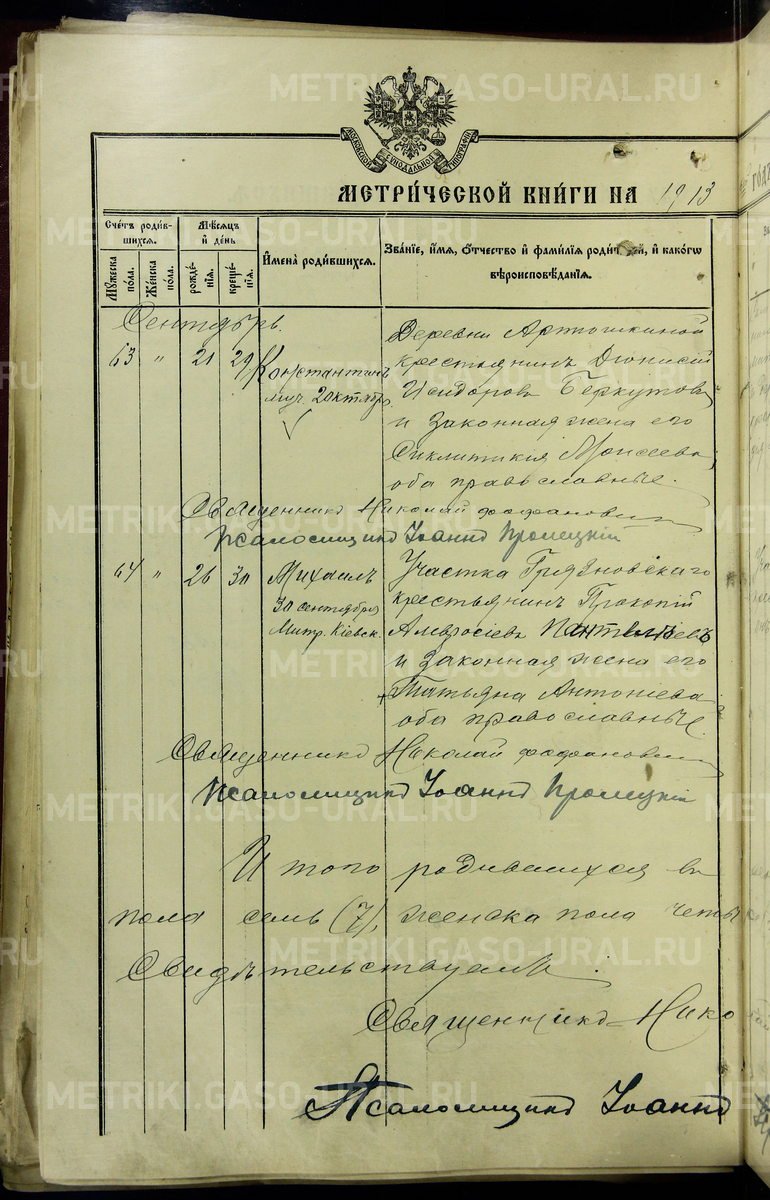 МОСКОВСКОЙ СѴНОДАЛЬНОЙ ТИПОГРАФІИ
МЕТРИЧЕСКОЙ КНИГИ НА 1913
Счетъ родившихся.
Мѣсяцъ и день
Имена родившихся.
Званіе, имя, отчество и фамилія родителей, и какого вѣроисповѣданія.
Мужеска пола.
Женска пола.
рожденія.
крещенія.
Сентябрь.
63 " 21 29 Константинъ
муч. 2 октября
Деревни Артюшкиной
крестьянинъ Діонисій
Исидоровъ Беркутовъ
и законная жена его
Синклитикія Моисеева,
оба православные.
Священникъ Николай
Псаломщикъ Іоаннъ
64 " 26 30 Михаилъ
30 сентября
Митр. Кіевск.
Участка Грязновскаго
крестьянинъ Прокопій
Амвросіевъ Пантелѣевъ
и законная жена его
Татьяна Антоніева
оба православные.
Священникъ Николай
Псаломщикъ Іоаннъ
Итого родившихся
пола семь (7), женска пола четы
Свидѣтельствуемъ.
Священникъ Нико
Псаломщикъ Іоаннъ
METRIKI.GASO-URAL.RU